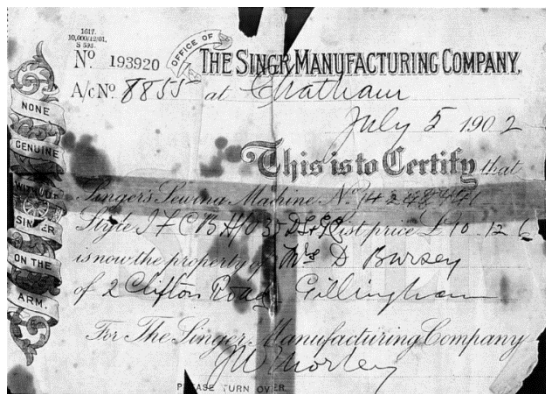 1617.
10,000/12/01.
S 592.
No 193920
OFFICE OF
THE SINGR MANUFACTURING COMPANY,
A/c No. 8855 at Chatham
July 5 1902
This is to Certify that
Singer's Sewing Machine No.
Style list price £10.12.6
is now the property of Mrs D Bursey
of 2 Clifton Road Gillingham
For The Singer Manufacturing Company
J W Morley
PLEASE TURN OVER
NONE
GENUINE
WITHOUT
SINGER
ON THE
ARM.